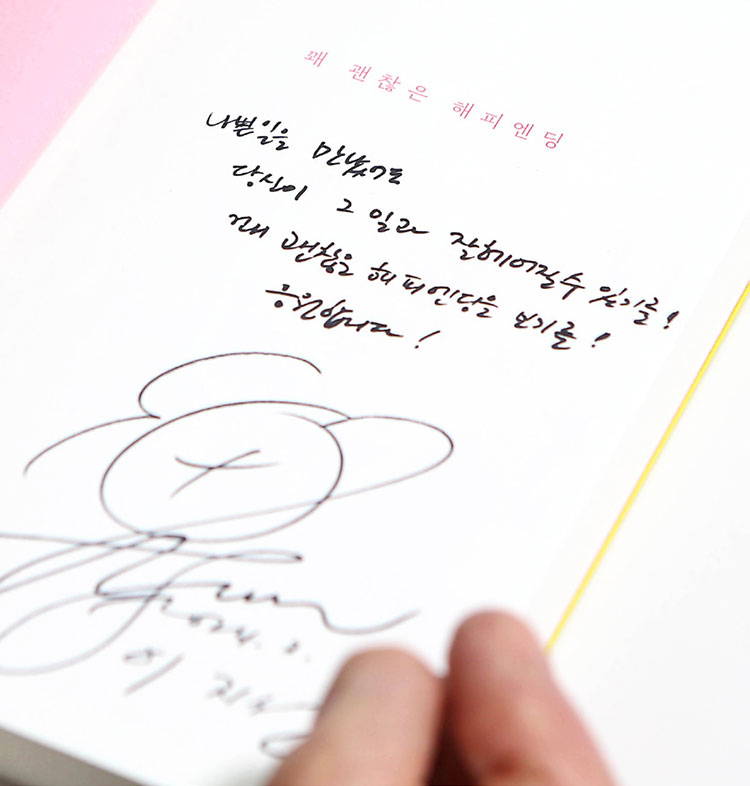 꽤 괜찮은 해피엔딩
나쁜일을 만났어도
당신이 그 일과 잘헤어질수 있기를!
꽤 괜찮은 해피엔딩을 보기를!
응원합니다!
2024. 2.
이 지선